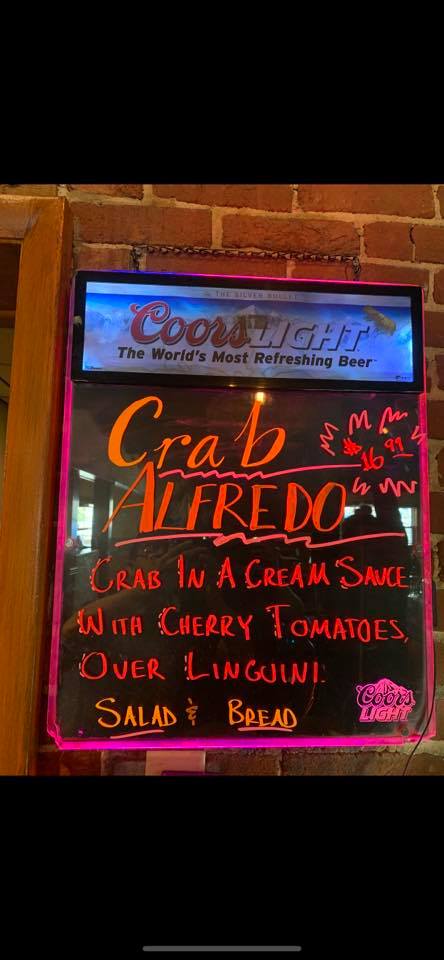 THE SILVER BULLET
Coors LIGHT
The World's Most Refreshing Beer
Crab
$16.99
ALFREDO
CRAB IN A CREAM SAUCE
WITH CHERRY TOMATOES,
OVER LINGUINI.
SALAD & BREAD
Coors
LIGHT